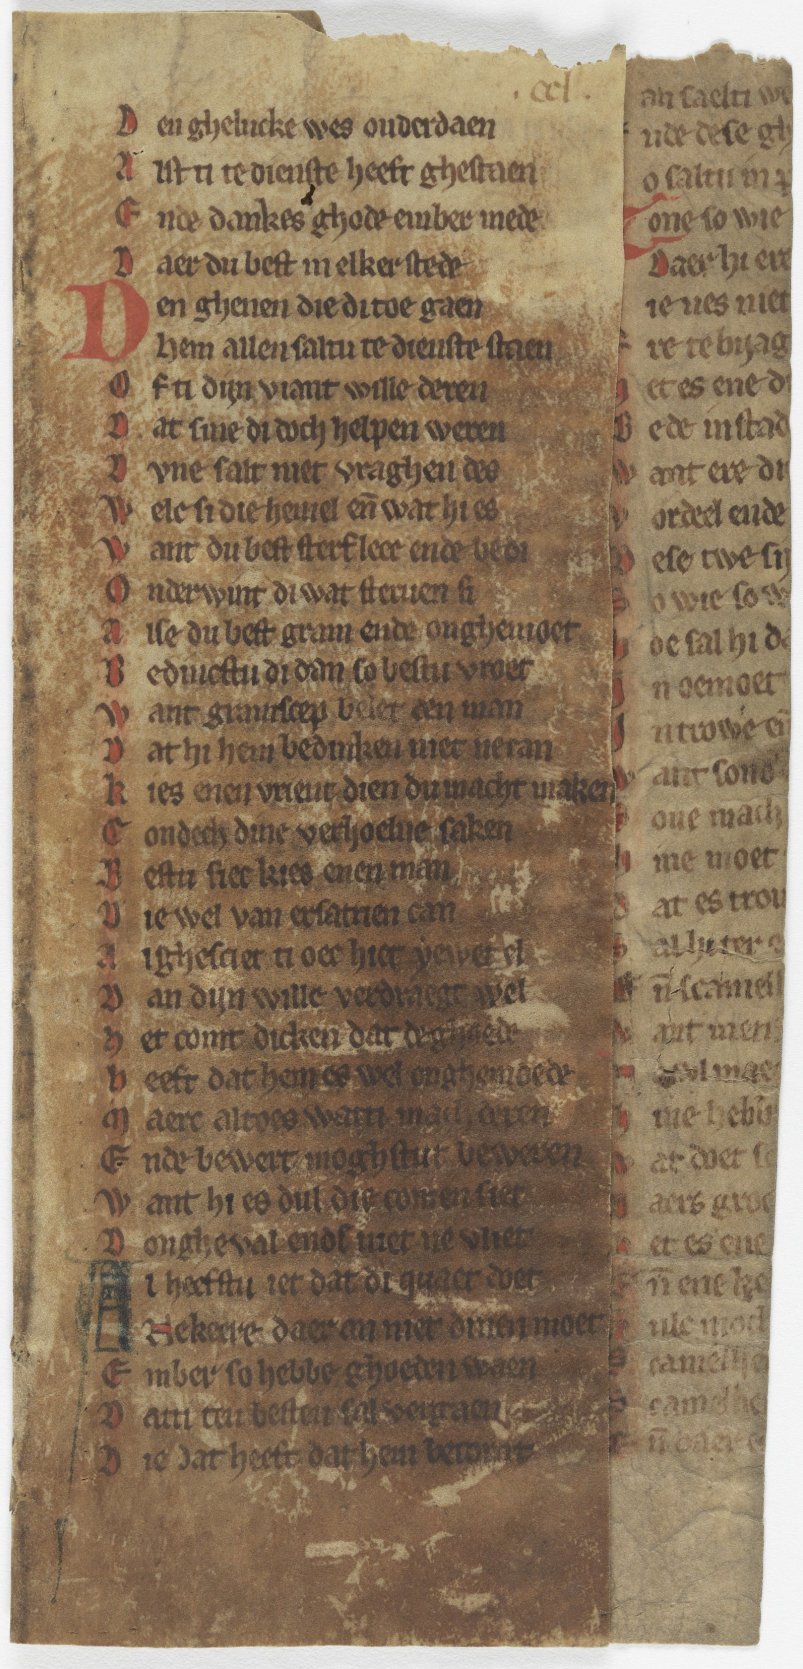 .ccl.
D en ghelucke wes onderdaen
A lst ti te dienste heeft ghestaen
E nde dankes ghode ember mede
D aer du best in elker stede
D en ghenen die di toe gaen
hem allen saltu te dienste staen
O f ti dijn viant wille deren
D at sine di doch helpen weren
D vne salt niet vraghen des
W elc si die hemel en̄ wat hi es
W ant du best sterfleec ende bedi
O nderwint di wat steruen si
A lse du best gram ende onghemoet
B edincstu di dan so bestu vroet
W ant gramscep belet den man
D at hi hem bedinken niet ne can
K ies enen vrient dien du macht maken
C ondech dine verhoelne saken
B estu siec kies enen man
D ie wel van ersatrien can
A
V an dijn wille verdraegt wel
H et comt dicken dat de ghoede
H eeft dat hem es wel onghemoede
M aerc altoes watti mach deren
E nde bewert moghstut beweren
W ant hi es dul die comen siet
D ongheval ends niet ne vliet
A l heefstu iet dat di quaet doet
Bekeere daer an niet dinen moet
E mber so hebbe ghoeden waen
D atti ten besten sal vergaen
D ie dat heeft dat hem betaemt
an saeltu
nde dese gh
o saltu in
one so wie
Daer hi ere
ie nes niet
re te bijag
et es ene d
B ede in stad
W ant ere di
V ordeel ende
ese twe si
o wie so
oe sal hi d
n oemoet
n trowe en̄
ant sond
oue mach
ine moet
at es trou
al luter
n̄ scamel
ant men
ine hebb
at doet s
aers groe
et es ene
n̄ ene
camelhe
camelhe
n̄ daer